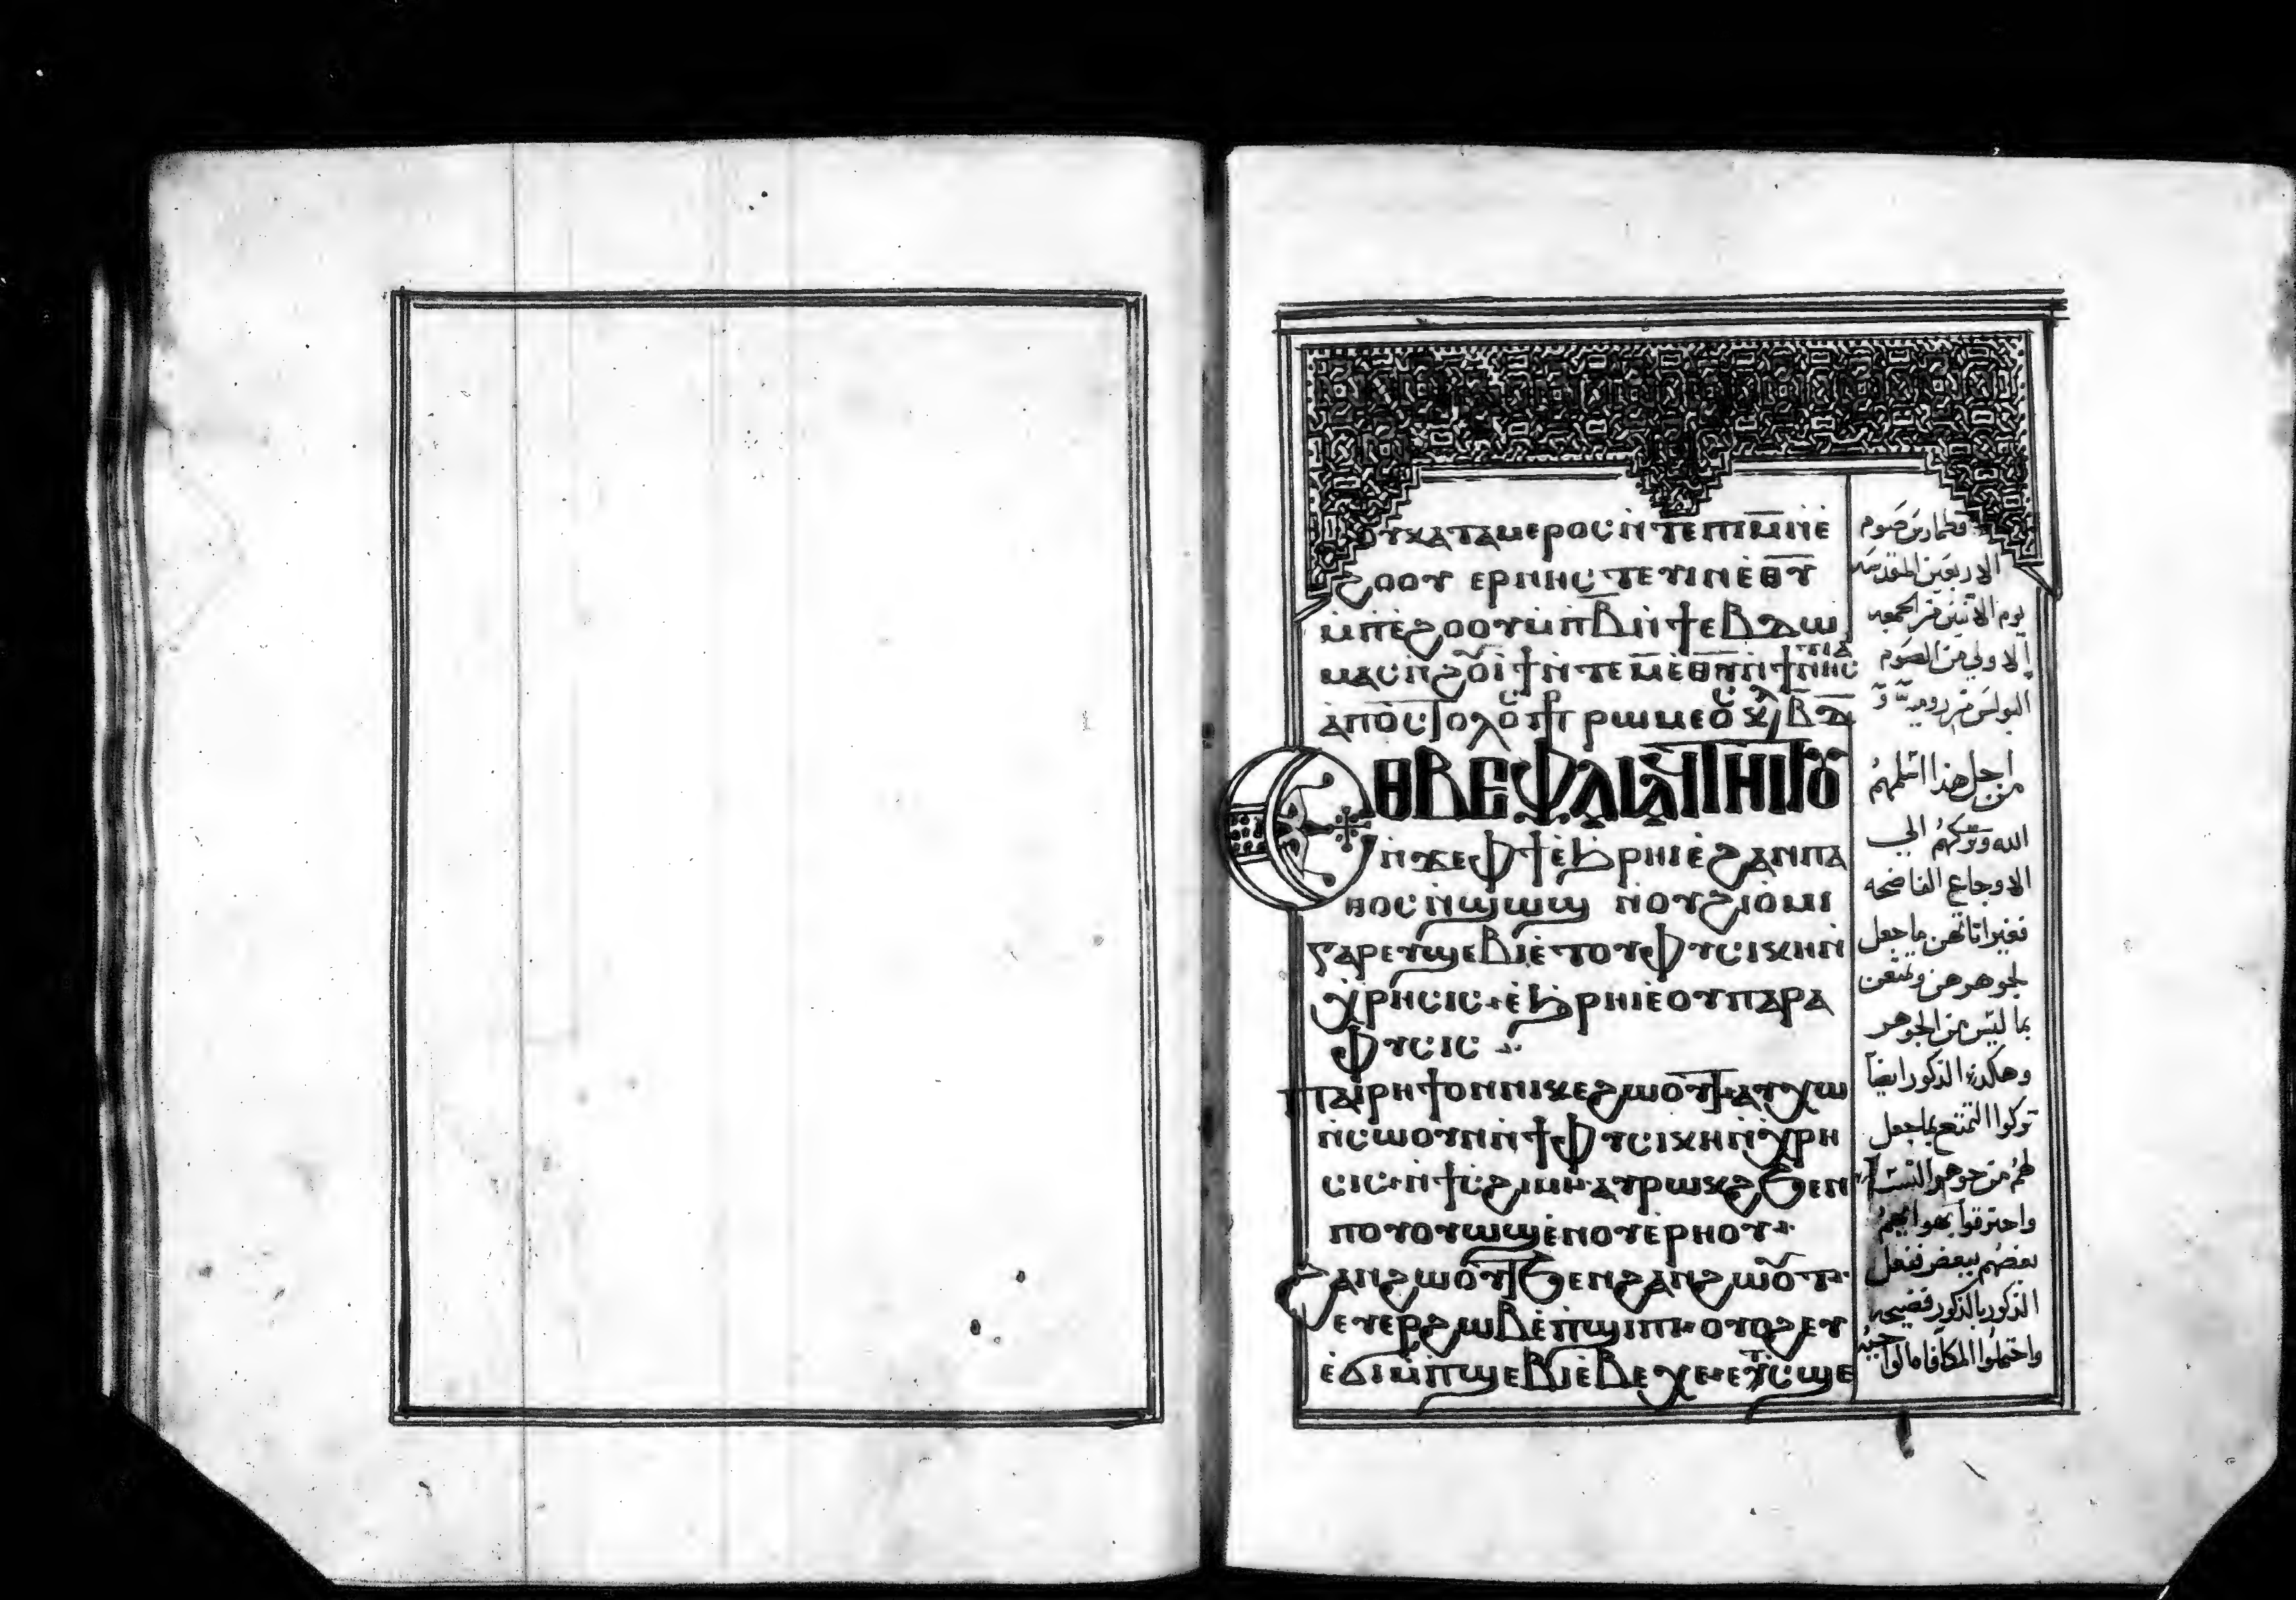 ⲟⲩⲕⲁⲧⲁⲙⲉⲣⲟⲥ ⲛ̀ⲧⲉ ⲡⲓⲙ̅ ⲛ̀ⲉ
ϩⲟⲟⲩ
ⲙ̀ⲡⲉ̀ϩⲟⲟⲩ ⲙ̀ⲡⲃ̅ ⲛ̀ϯⲉⲃⲇⲱ
ⲙⲁⲥ
ⲁ̀ⲡⲟⲥⲧⲟⲗⲟⲥ ⲡⲣ ⲣⲱⲙⲉⲟⲥ
ⲉⲑⲃⲉ ⲫⲁⲓ ⲁϥⲧⲏⲓⲧⲟⲩ
ⲛ̀ϫⲉ ⲫϯ ⲉ̀ϧⲣⲏⲓ ⲉ̀ϩⲁⲛⲡⲁ
ⲑⲟⲥ ⲛ̀ϣⲱϣ ⲛⲟⲩϩⲓⲟ̀ⲙⲓ
ⲅⲁⲣ ⲉⲩϣⲉⲃⲓⲉ̀ ⲧⲟⲩⲫⲩⲥⲓⲕⲏ ⲛ̀
ⲭⲣⲏⲥⲓⲥ ⲉ̀ϧⲣⲏⲓ ⲉ̀ⲟⲩⲡⲁⲣⲁ
ⲫⲩⲥⲓⲥ
ⲡⲁⲓⲣⲏϯ ⲟⲛ ⲛⲓⲕⲉϩⲱⲟⲩⲧ ⲁⲩⲭⲱ
ⲛ̀ⲥⲱⲟⲩ ⲛ̀ϯⲫⲩⲥⲓⲕⲏ ⲛ̀ⲭⲣⲏ
ⲥⲓⲥ ⲛ̀ϯⲥϩⲓⲙⲓ ⲁⲩⲣⲱⲕϩ ϧⲉⲛ
ⲡⲟⲩⲟⲩⲱϣ ⲉ̀ⲛⲟⲩⲉ̀ⲣⲏⲟⲩ
ϩⲁⲛϩⲱⲟⲩⲧ ϧⲉⲛ ϩⲁⲛϩⲱⲟⲩⲧ
ⲉⲩⲉⲣϩⲱⲃ ⲉ̀ⲡϣⲓⲡⲓ ⲟⲩⲟϩ ⲉⲩ
ⲉ̀ϭⲓ ⲙ̀ⲡϣⲉⲃⲓⲉ̀ ⲃⲉⲭⲉ ⲉ̀ⲧⲥϣⲉ
قطمارس صوم
الاربعين المقدسه
يوم الاثنين من الجمعه
الاولي من الصوم
البولس من روميه
من اجل هذا اسلمهم
الله وتركهم الي
الاوجاع الفاضحه
فغيرا اناثهن ما جعل
لجوهرهن وتمتعن
بما ليس من الجوهر
وهكذا الذكور ايضا
تركوا التمتع بما جعل
لهم من جوهر النسا
واحترقوا بهوايهم
بعضهم ببعض ففعل
الذكور بالذكور فضيحه
واحتملوا المكافاه